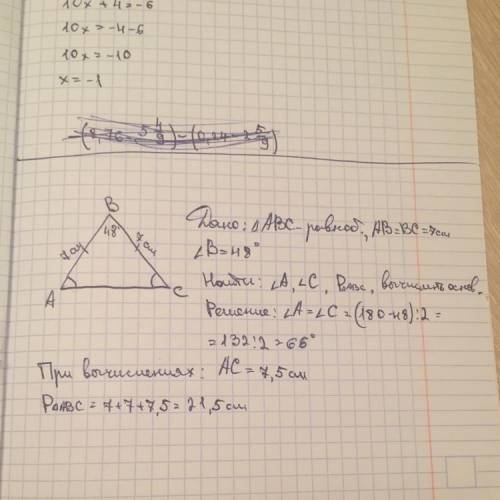 10x + 4 = -6
10x = -4-6
10x = -10
x = -1
B
48°
7см
7см
A
C
Дано: △ABC - равноб., AB=BC=7см
∠B=48°
Найти: ∠A, ∠C, P△ABC, вычислить основ.
Решение: ∠A=∠C=(180-48):2=
=132:2=66°
При вычислениях: AC=7,5см
P△ABC = 7+7+7,5=21,5см